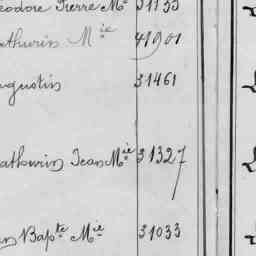 éodore Pierre Mie 31133
athurin Mie 41901
ugustin 31461
athurin Jean Mie 31327
en Bapte Mie 31033